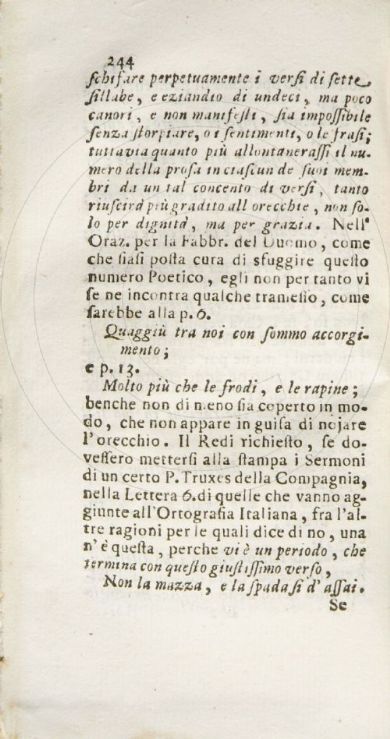 244
ſchifare perpetuamente i verſi di ſette
ſillabe, e eziandio di undeci, ma poco
canori, e non manifeſti, ſia impoſſibile
ſenza ſtorpiare, o i ſentimenti, o le fraſi;
tuttavia quanto più allontaneraſſi il nu-
mero della proſa in ciaſcun de ſuoi mem-
bri da un tal concento di verſi, tanto
riuſcirà più gradito all' orecchie, non ſo-
lo per dignità, ma per grazia. Nell'
Oraz. per la Fabbr. del Duomo, come
che ſiaſi poſta cura di sfuggire queſto
numero Poetico, egli non per tanto vi
ſe ne incontra qualche trameſſo, come
ſarebbe alla p. 6.
Quaggiù tra noi con ſommo accorgi-
mento;
e p. 13.
Molto più che le frodi, e le rapine;
benche non di meno ſia coperto in mo-
do, che non appare in guiſa di nojare
l'orecchio. Il Redi richieſto, ſe do-
veſſero metterſi alla ſtampa i Sermoni
di un certo P. Truxes della Compagnia,
nella Lettera 6. di quelle che vanno ag-
giunte all'Ortografia Italiana, fra l'al-
tre ragioni per le quali dice di no, una
n'è queſta, perche vi è un periodo, che
termina con queſto giuſtiſſimo verſo,
Non la mazza, e la ſpada ſi d'aſſai.
Se